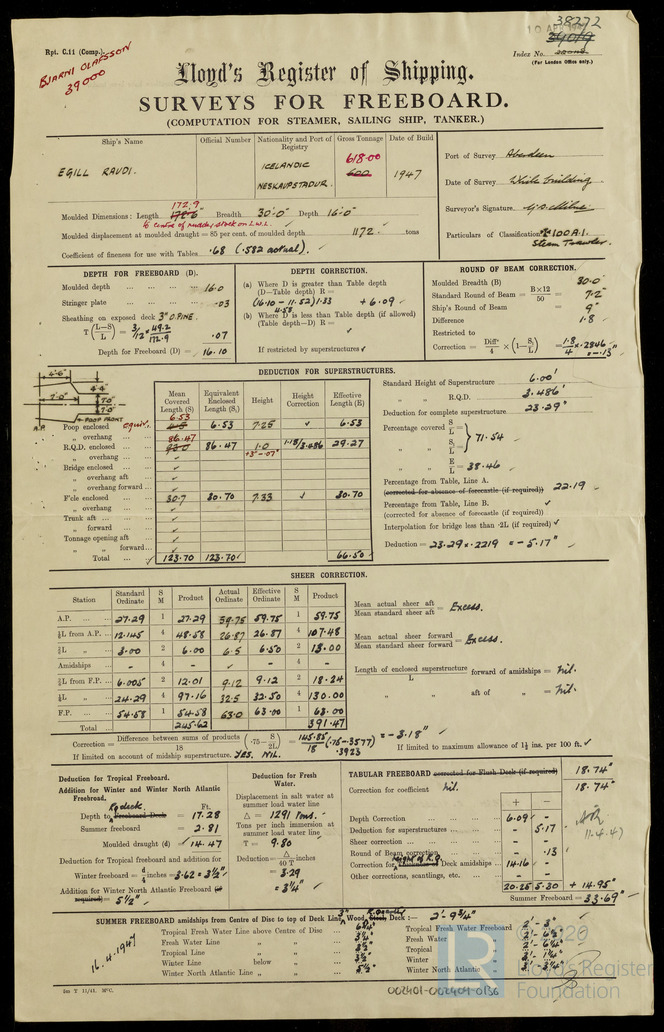 38272
10 APR 1947
Rpt. C.11 (Comp.).
Index No.
(For London Office only.)
BJARNI OLAFSSON
39000
Lloyd's Register of Shipping.
SURVEYS FOR FREEBOARD.
(COMPUTATION FOR STEAMER, SAILING SHIP, TANKER.)
Ship's Name Official Number Nationality and Port of Registry Gross Tonnage Date of Build
EGILL RAUDI. ICELANDIC NESKAUPSTADUR. 618.00 600 1947
Port of Survey Aberdeen
Date of Survey While building
Surveyor's Signature
Particulars of Classification +100A.1. Steam Trawler.
172.9
Moulded Dimensions: Length 172'6" Breadth 30'.0" Depth 16'.0"
to centre of rudder stock on L.W.L.
Moulded displacement at moulded draught = 85 per cent. of moulded depth 1172. tons
Coefficient of fineness for use with Tables .68 (.582 actual).
DEPTH FOR FREEBOARD (D).
Moulded depth 16.0
Stringer plate .03
Sheathing on exposed deck 3" O.PINE.
T(L-S/L) = 3/12 × 49.2/172.9 .07
Depth for Freeboard (D) = 16.10
DEPTH CORRECTION.
(a) Where D is greater than Table depth
(D—Table depth) R =
(16.10 - 11.52)1.33 = + 6.09
4.58
(b) Where D is less than Table depth (if allowed)
(Table depth—D) R =
If restricted by superstructures
ROUND OF BEAM CORRECTION.
Moulded Breadth (B) 30.0
Standard Round of Beam = B×12/50 = 7.2
Ship's Round of Beam = 9"
Difference 1.8
Restricted to
Correction = Diff/4 × (1-S₁/L) = 1.8/4 × .2846 = -.13"
DEDUCTION FOR SUPERSTRUCTURES.
4'-6"
4'-4"
7'-0"
7'0"
7'-0"
POOP FRONT
A.P.
Mean Covered Length (S) Equivalent Enclosed Length (S₁) Height Height Correction Effective Length (E)
Poop enclosed equiv. 6.53 6.53 7.25 6.53
„ overhang
R.Q.D. enclosed 86.47 86.47 1.0 1.18/3.486 29.27
+3"-.07"
„ overhang
Bridge enclosed
„ overhang aft
„ overhang forward
F'cle enclosed 30.7 30.70 7.33 30.70
„ overhang
Trunk aft
„ forward
Tonnage opening aft
„ „ forward
Total 123.70 123.70 66.50
Standard Height of Superstructure 6.00'
„ „ R.Q.D. 3.486'
Deduction for complete superstructure 23.29"
Percentage covered S/L =
„ „ S₁/L = 71.54
„ „ E/L = 38.46
Percentage from Table, Line A. 22.19
(corrected for absence of forecastle (if required))
Percentage from Table, Line B.
(corrected for absence of forecastle (if required))
Interpolation for bridge less than ·2L (if required)
Deduction = 23.29 × .2219 = -5.17"
SHEER CORRECTION.
Station Standard Ordinate S M Product Actual Ordinate Effective Ordinate S M Product
A.P. 27.29 1 27.29 59.75 59.75 1 59.75
⅙L from A.P. 12.145 4 48.58 26.87 26.87 4 107.48
⅓L „ 3.00 2 6.00 6.5 6.50 2 13.00
Amidships - 4 - - 4 -
⅓L from F.P. 6.005 2 12.01 9.12 9.12 2 18.24
⅙L „ 24.29 4 97.16 32.5 32.50 4 130.00
F.P. 54.58 1 54.58 63.0 63.00 1 63.00
Total 245.62 391.47
Mean actual sheer aft / Mean standard sheer aft = Excess.
Mean actual sheer forward / Mean standard sheer forward = Excess.
Length of enclosed superstructure / L forward of amidships = Nil.
„ „ aft of „ = Nil.
Correction = Difference between sums of products / 18 (·75 - S/2L) = 145.85/18 (.75-.3577) = -3.18"
.3923
If limited on account of midship superstructure. YES. NIL.
If limited to maximum allowance of 1½ ins. per 100 ft.
Deduction for Tropical Freeboard.
Addition for Winter and Winter North Atlantic Freeboard.
RQ deck. Ft.
Depth to Freeboard Deck = 17.28
Summer freeboard = 2.81
Moulded draught (d) 14.47
Deduction for Tropical freeboard and addition for
Winter freeboard = d/4 inches = 3.62 = 3½"
Addition for Winter North Atlantic Freeboard (if required) = 5½"
Deduction for Fresh Water.
Displacement in salt water at summer load water line
Δ = 1291 Tons.
Tons per inch immersion at summer load water line
T = 9.80
Deduction = Δ/40 T inches
= 3.29
= 3¼"
TABULAR FREEBOARD corrected for Flush Deck (if required) 18.74"
Correction for coefficient Nil. 18.74"
+ -
Depth Correction 6.09 -
Deduction for superstructures - 5.17
Sheer correction - -
Round of Beam correction - .13
Correction for Height of R.Q. Deck amidships 14.16 -
Other corrections, scantlings, etc. - -
20.25 5.30 + 14.95"
Summer Freeboard = 33.69"
11.4.47
SUMMER FREEBOARD amidships from Centre of Disc to top of Deck Line, 3" Wood, Deck :— 2'-9¾"
Tropical Fresh Water Line above Centre of Disc 6¾"
Fresh Water Line „ „ 3¼"
Tropical Line „ „ 3½"
Winter Line below „ 3½"
Winter North Atlantic Line „ „ 5½"
Tropical Fresh Water Freeboard 2'-3"
Fresh Water „ 2'-6½"
Tropical „ 2'-6¼"
Winter „ 3'-1¼"
Winter North Atlantic „ 3'-3¼"
16.4.1947
2m T 11/41. 30°C.
002401-002409-0136
LR
© 2020
Lloyd's Register
Foundation